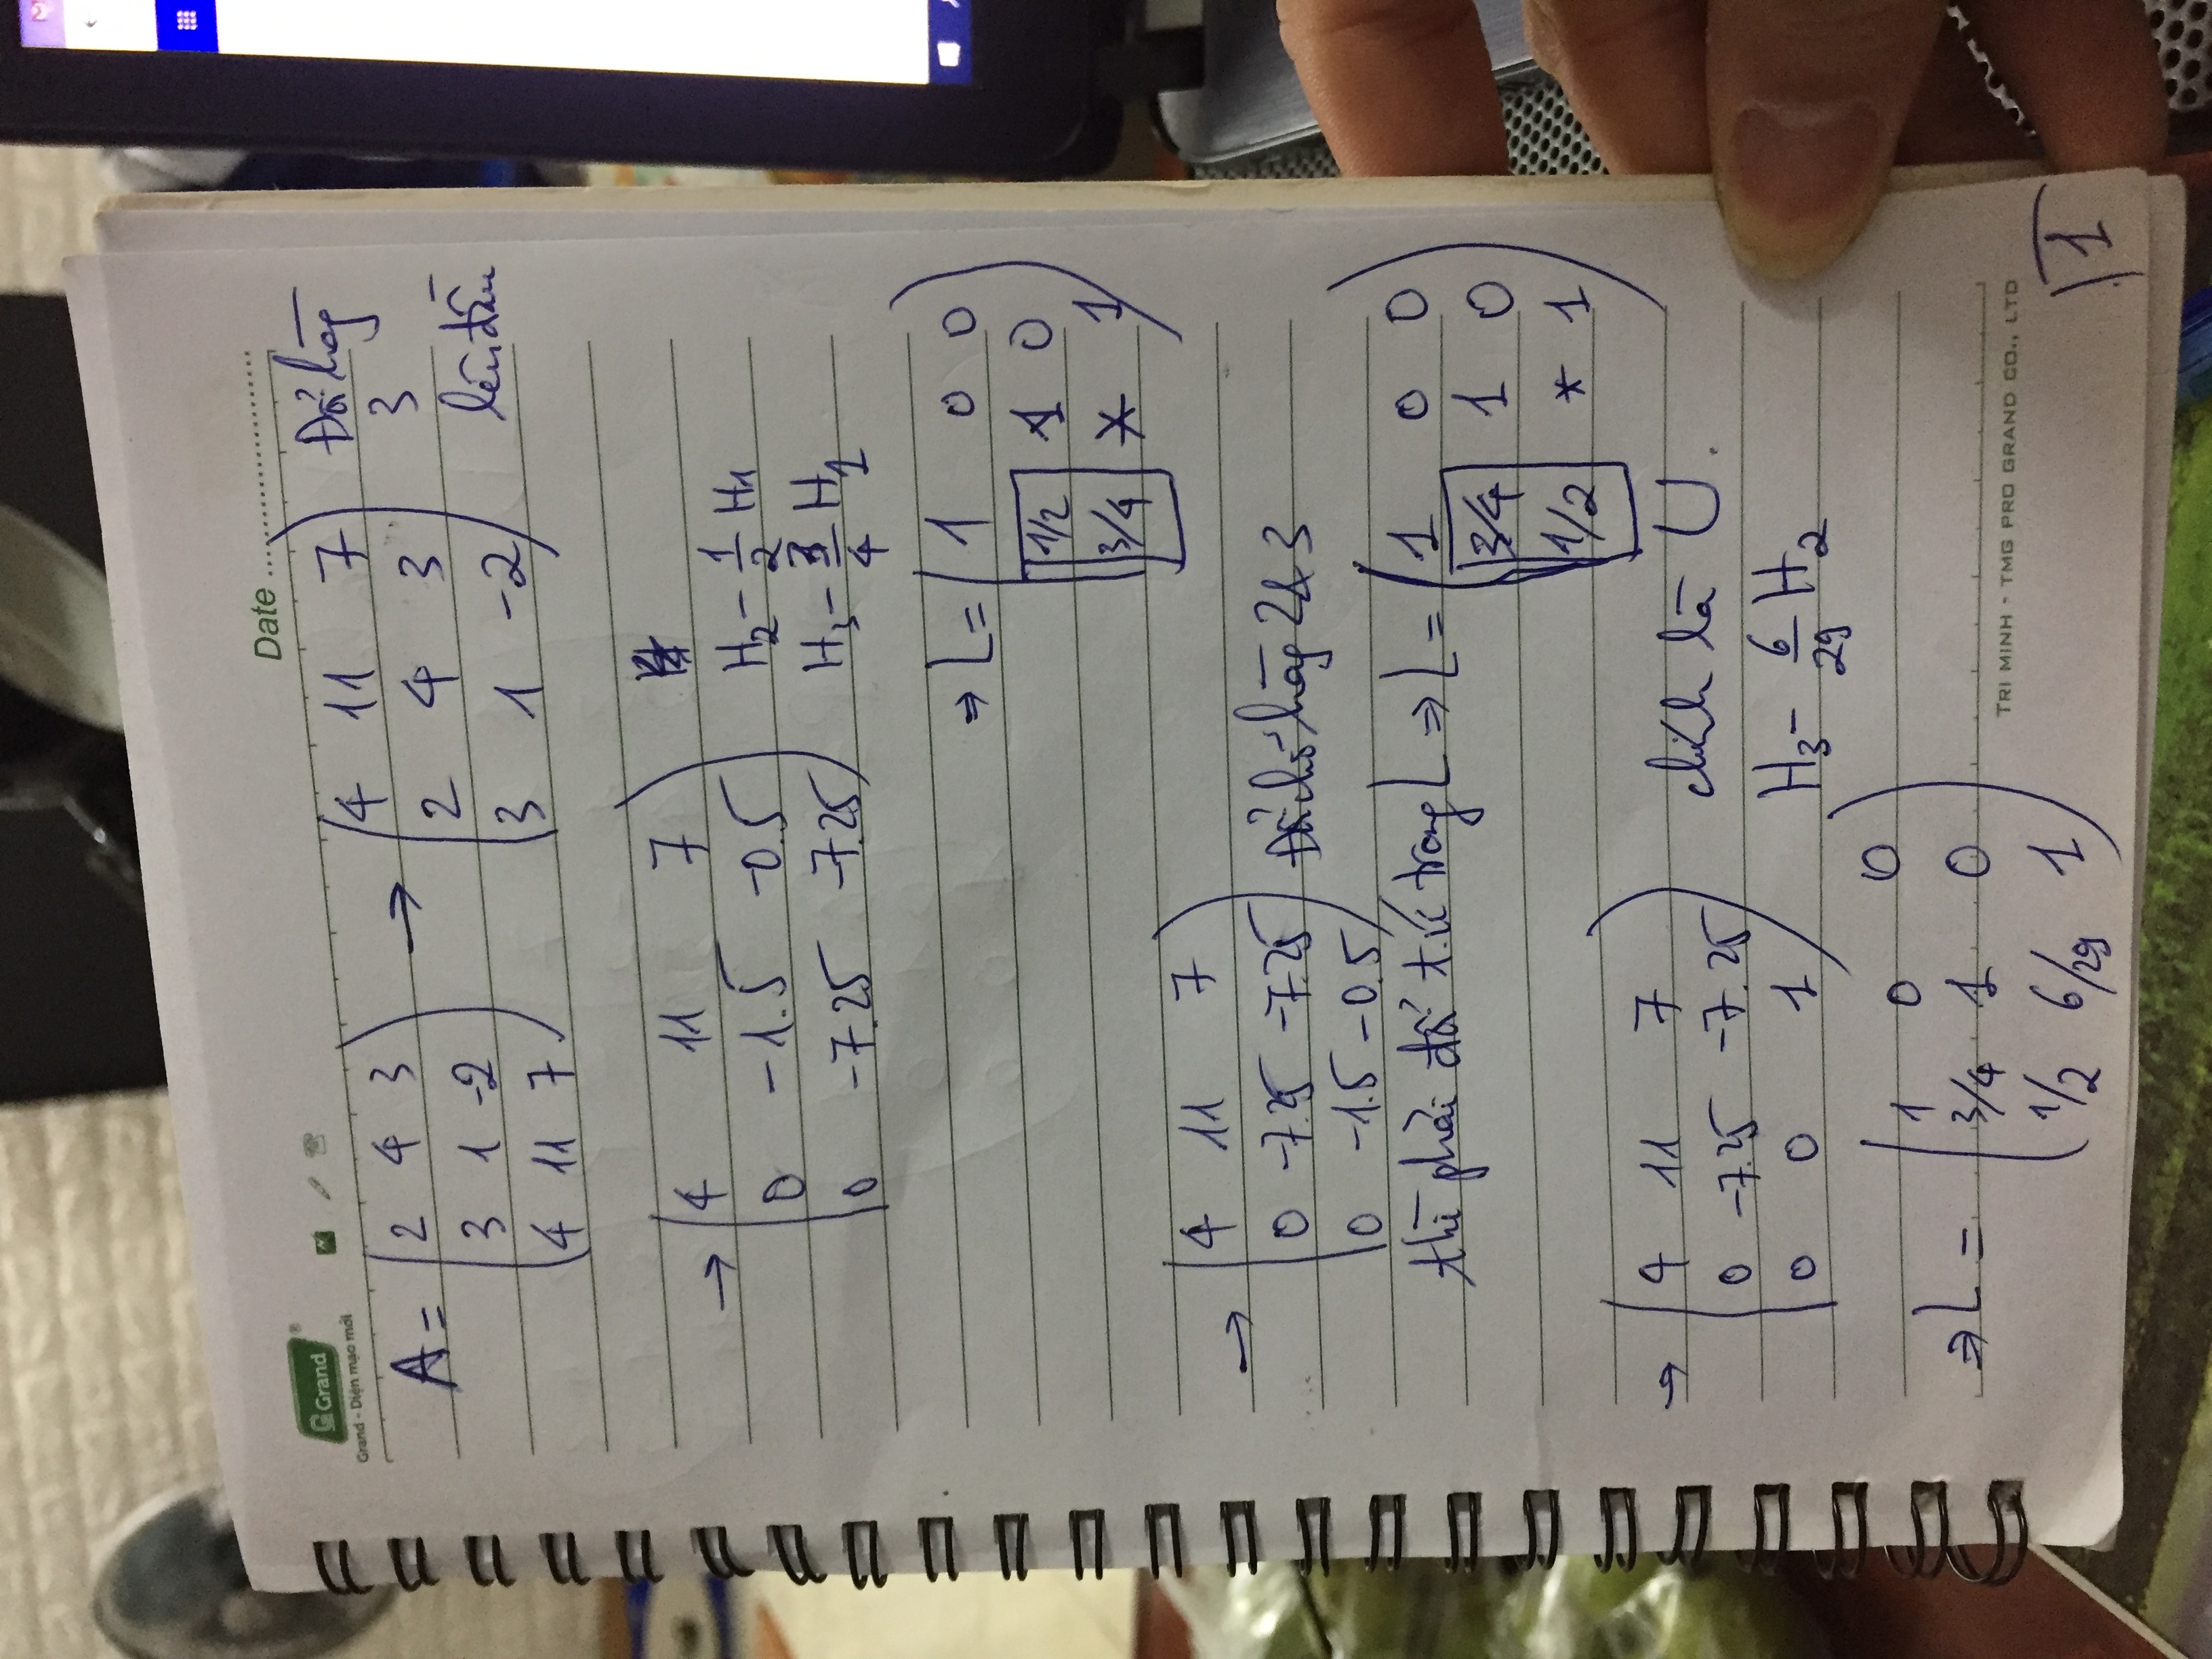 Date
Grand
Grand - Diện mạo mới
A = (2 4 3
3 1 -2
4 11 7)
→ (4 11 7
2 4 3
3 1 -2)
Đổi hàng
3
lên đầu
→ (4 11 7
0 -1.5 -0.5
0 -7.25 -7.25)
H2 - 1/2 H1
H3 - 3/4 H1
⇒ L = (1 0 0
1/2 1 0
3/4 * 1)
→ (4 11 7
0 -7.25 -7.25
0 -1.5 -0.5)
Đổi chỗ hàng 2&3
thì phải đổi t.ứ trong L ⇒ L = (1 0 0
3/4 1 0
1/2 * 1)
→ (4 11 7
0 -7.25 -7.25
0 0 1)
chính là U.
H3 - 6/29 H2
⇒ L = (1 0 0
3/4 1 0
1/2 6/29 1)
TRI MINH - TMG PRO GRAND CO., LTD
1